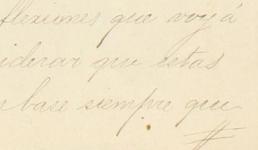 flexiones que voy á
siderar que estas
base siempre que